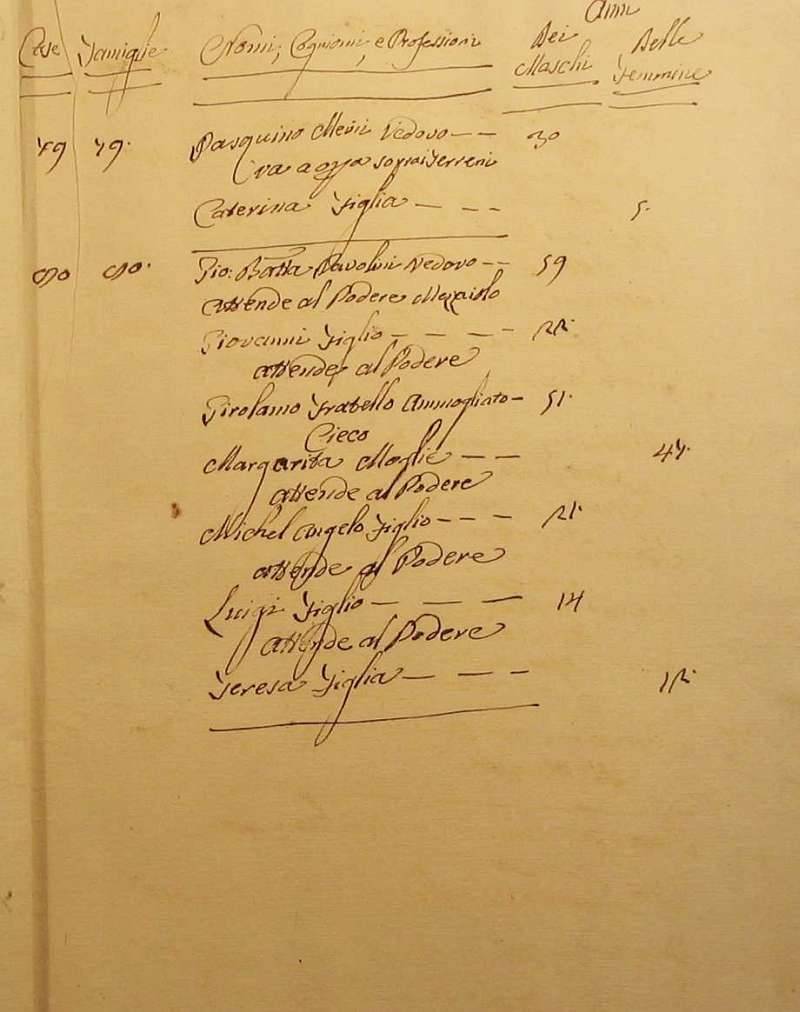 Anni
Case Famiglie Nomi, Cognomi, e Professioni Dei Maschi Delle Femmine
79 79. Pasquino Vedovo — — 30
Va a opra sopra i terreni
Caterina Figlia — — — 5.
80 80. Gio: Batta Pavolini Vedovo — — 59
attende al Podere Mezzaiolo
Giovanni Figlio — — — — 22.
attende al Podere
Girolamo Fratello Ammogliato — 51.
Cieco
Margarita Moglie — — 47.
attende al Podere
Michel Angelo Figlio — — — 21.
attende al Podere
Luigi Figlio — — — 14
attende al Podere
Teresa Figlia — — — 12.